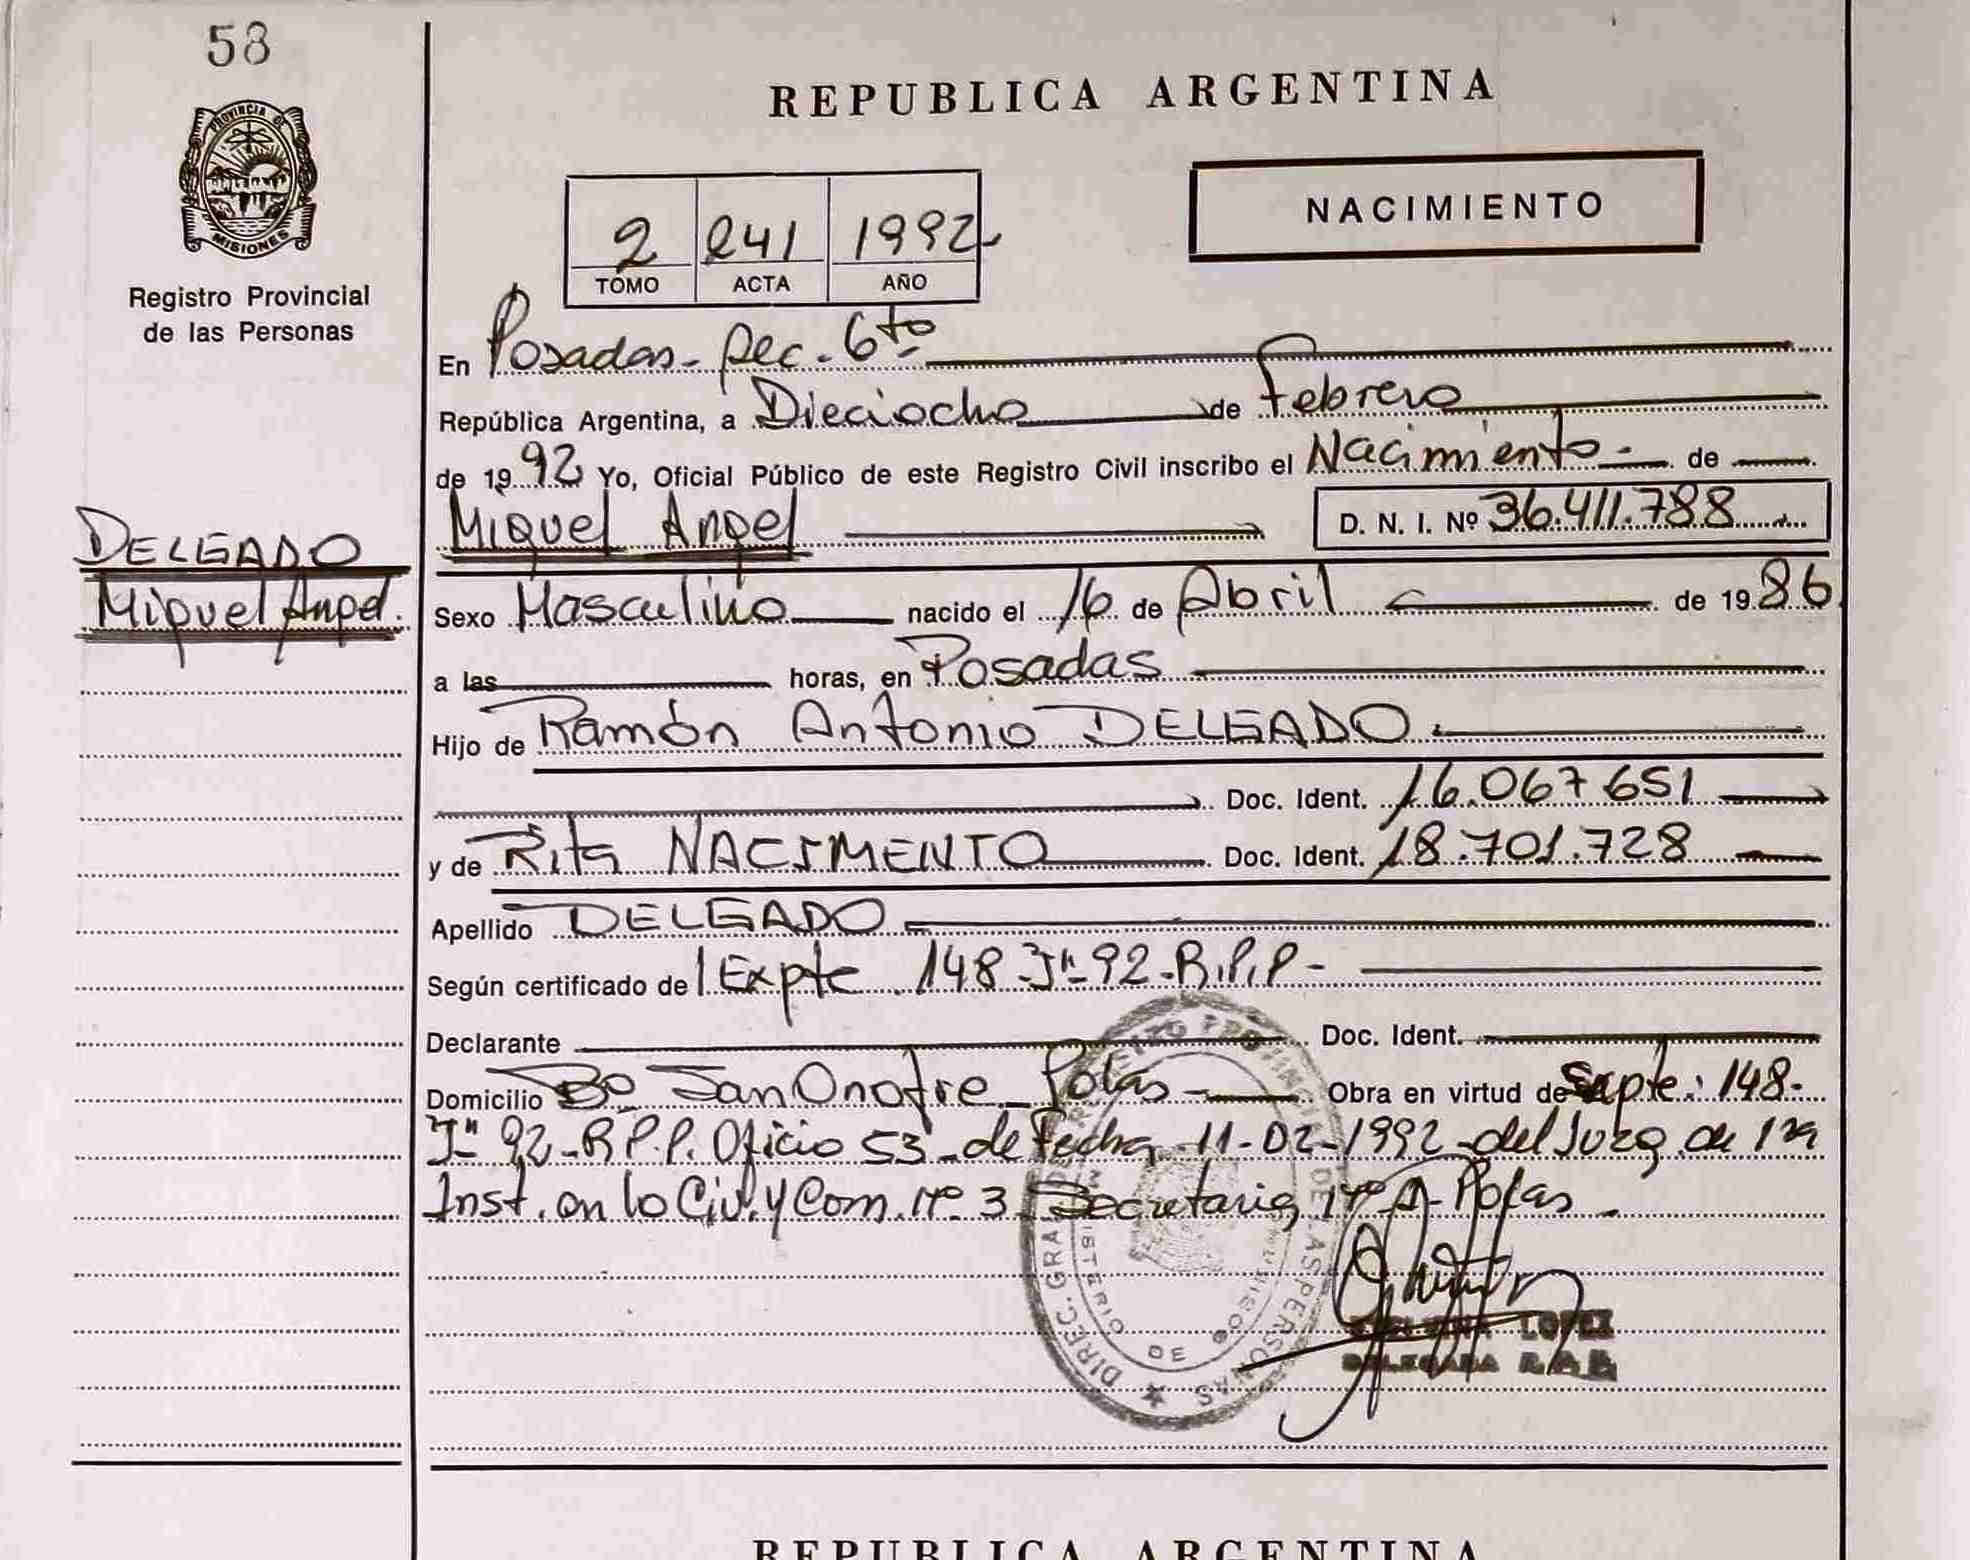 58
PROVINCIA DE
MISIONES
Registro Provincial
de las Personas
DELGADO
Miguel Angel.
REPUBLICA ARGENTINA
NACIMIENTO
2 241 1992
TOMO ACTA AÑO
En Posadas - Sec. 6to
República Argentina, a Dieciocho de Febrero
de 1992 Yo, Oficial Público de este Registro Civil inscribo el Nacimiento - de
Miguel Angel D. N. I. Nº 36.411.788
Sexo Masculino nacido el 16 de Abril de 1986
a las horas, en Posadas
Hijo de Ramón Antonio DELGADO
Doc. Ident. 16.067.651
y de Rita NACIMENTO Doc. Ident. 18.701.728
Apellido DELGADO
Según certificado de Expte 148-Jn-92-R.P.P-
Declarante Doc. Ident.
Domicilio Bº San Onofre - Pdas - Obra en virtud de Expte: 148-
Jn-92-R.P.P. Oficio 53 - de Fecha 11-02-1992 - del Juzg. de 1ra
Inst. en lo Civ. y Com. Nº 3 Secretaria Nº - Pdas -
DIREC. GRAL. DE REGISTRO PROVINCIAL DE LAS PERSONAS
MINISTERIO DE
LOPEZ
DELEGADA
REPUBLICA ARGENTINA